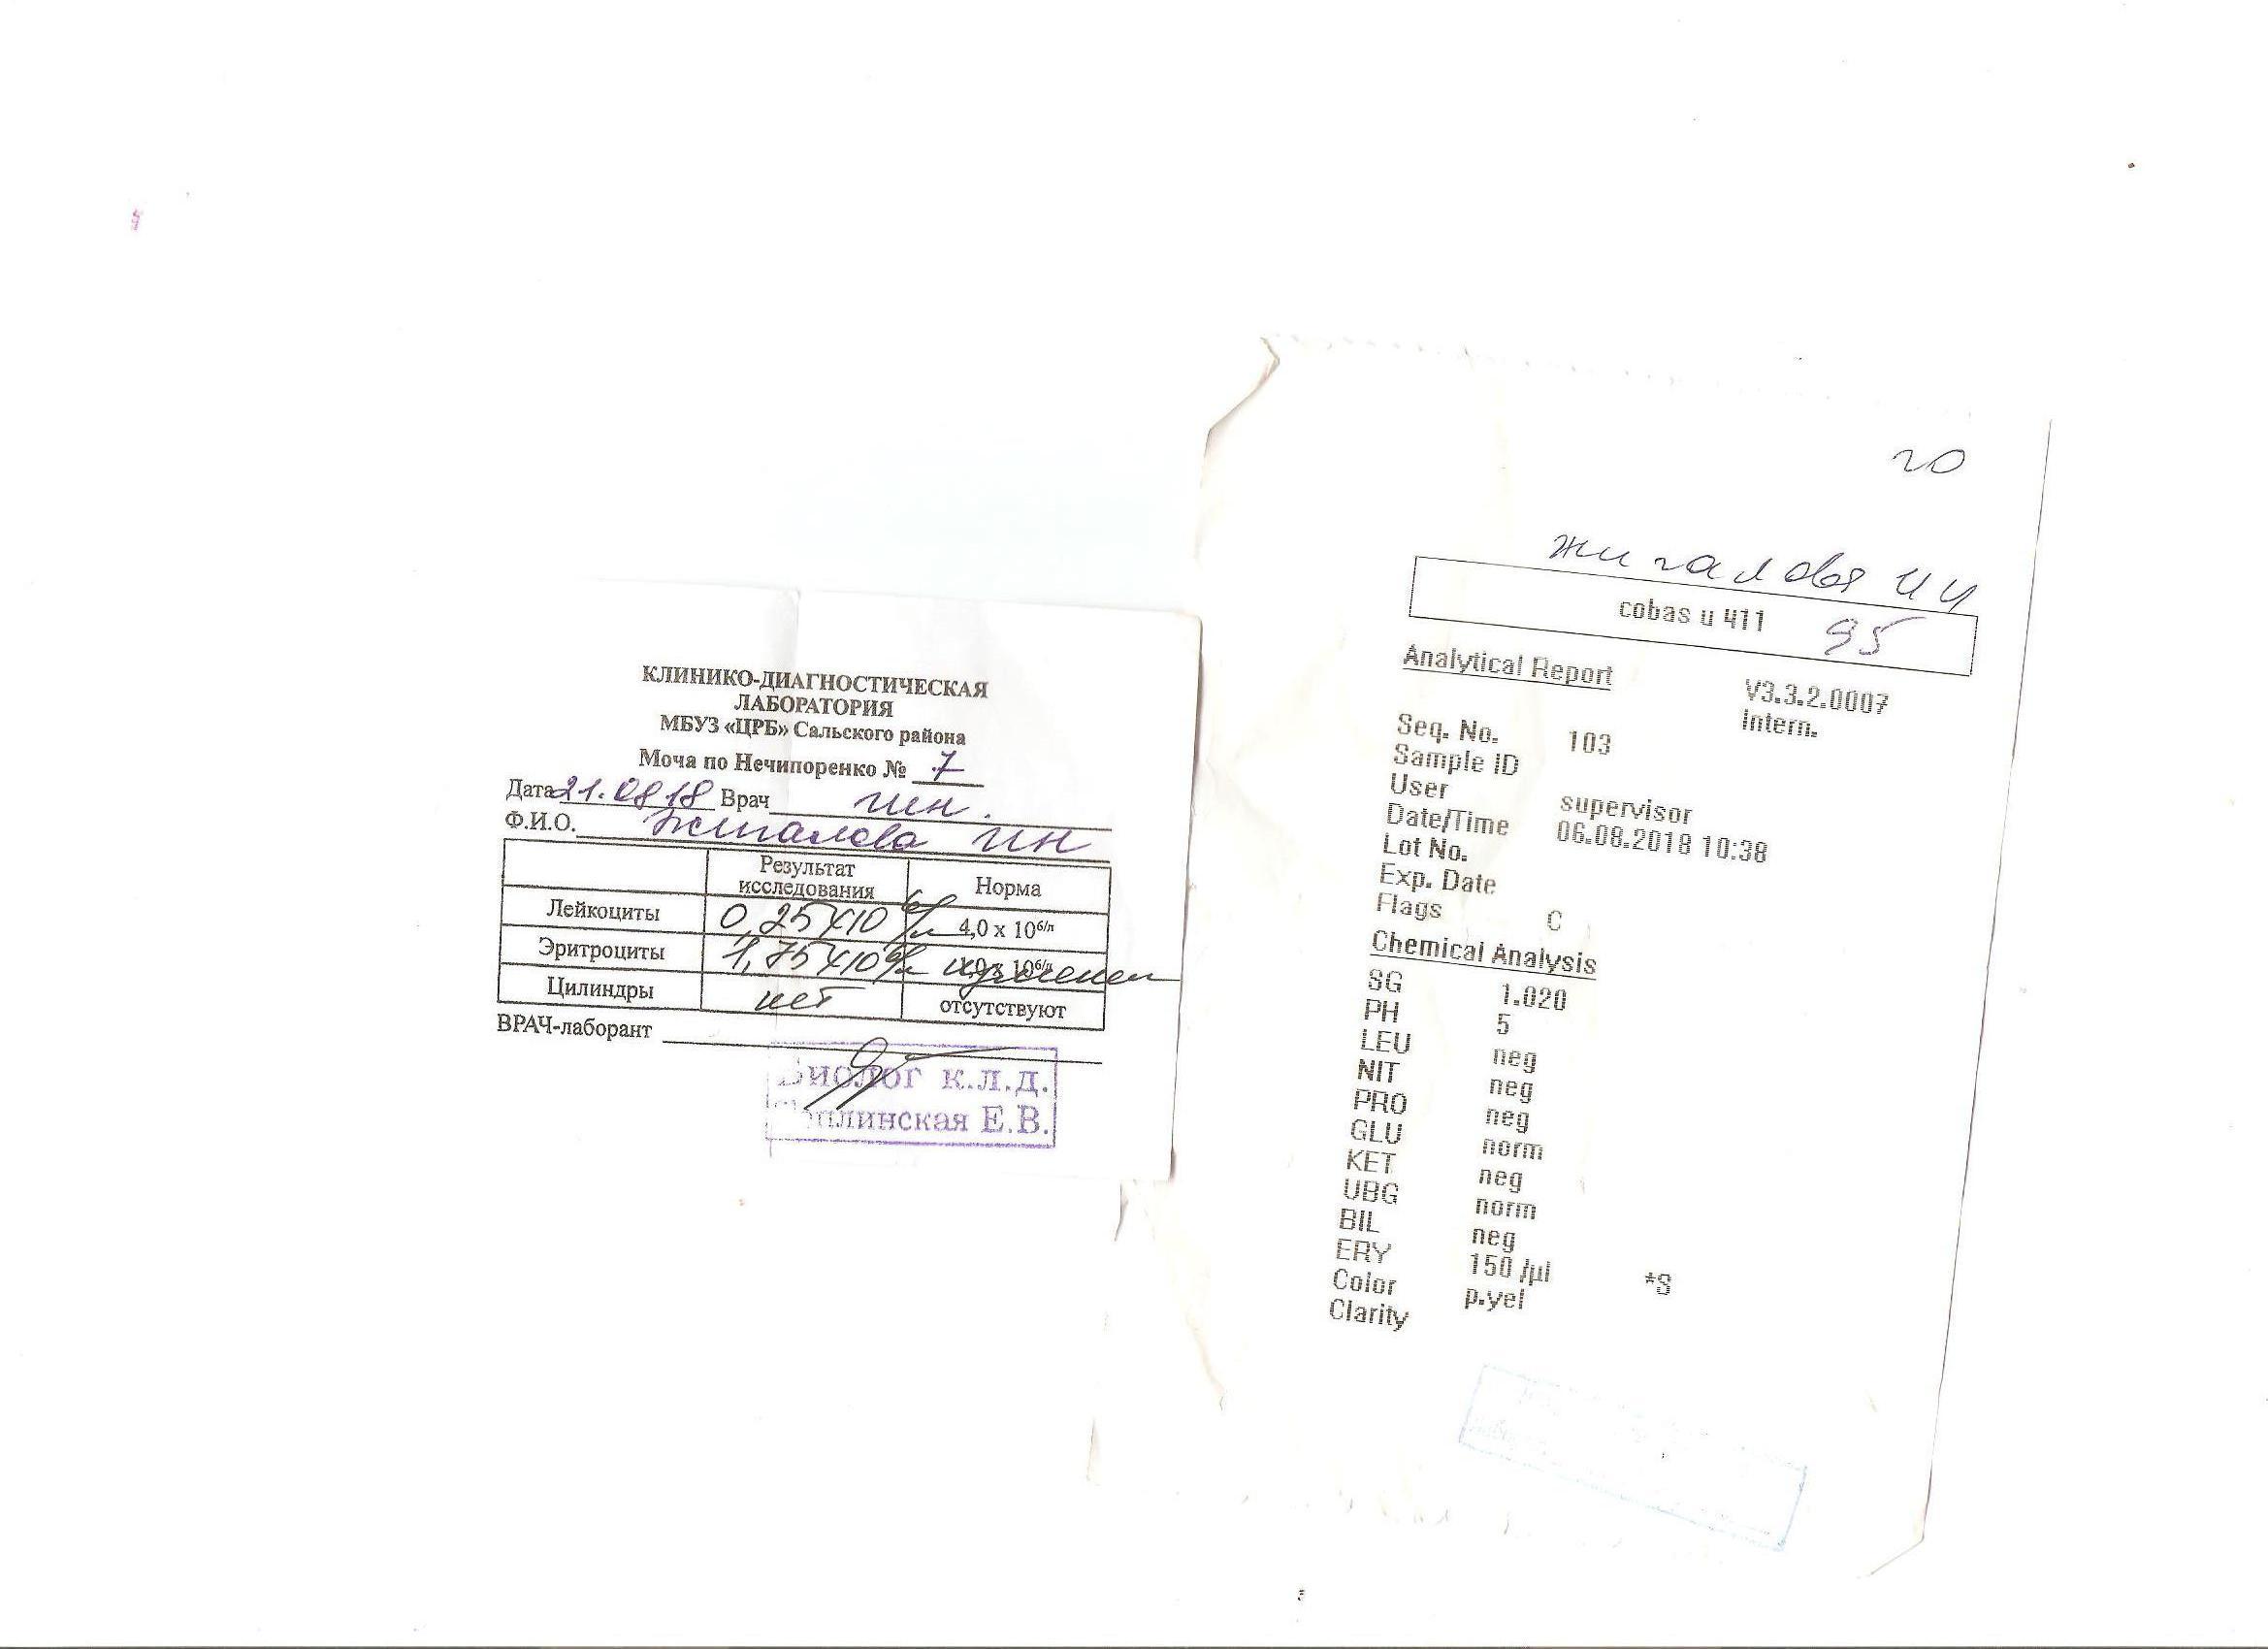 КЛИНИКО-ДИАГНОСТИЧЕСКАЯ
ЛАБОРАТОРИЯ
МБУЗ «ЦРБ» Сальского района
Моча по Нечипоренко № 7
Дата 21.08 18 Врач
Ф.И.О. Жигалова ИН
Результат исследования Норма
Лейкоциты 0,25 х 10 6/л 4,0 х 10 6/л
Эритроциты 1,75 х 10 6/л х 10 6/л
Цилиндры нет отсутствуют
ВРАЧ-лаборант
Биолог к.л.д.
Е.В.
Жигалова
cobas u 411 95
Analytical Report V3.3.2.0007
Intern.
Seq. No. 103
Sample ID
User supervisor
Date/Time 06.08.2018 10:38
Lot No.
Exp. Date
Flags C
Chemical Analysis
SG 1.020
PH 5
LEU neg
NIT neg
PRO neg
GLU norm
KET neg
UBG norm
BIL neg
ERY 150 /µl *S
Color p.yel
Clarity